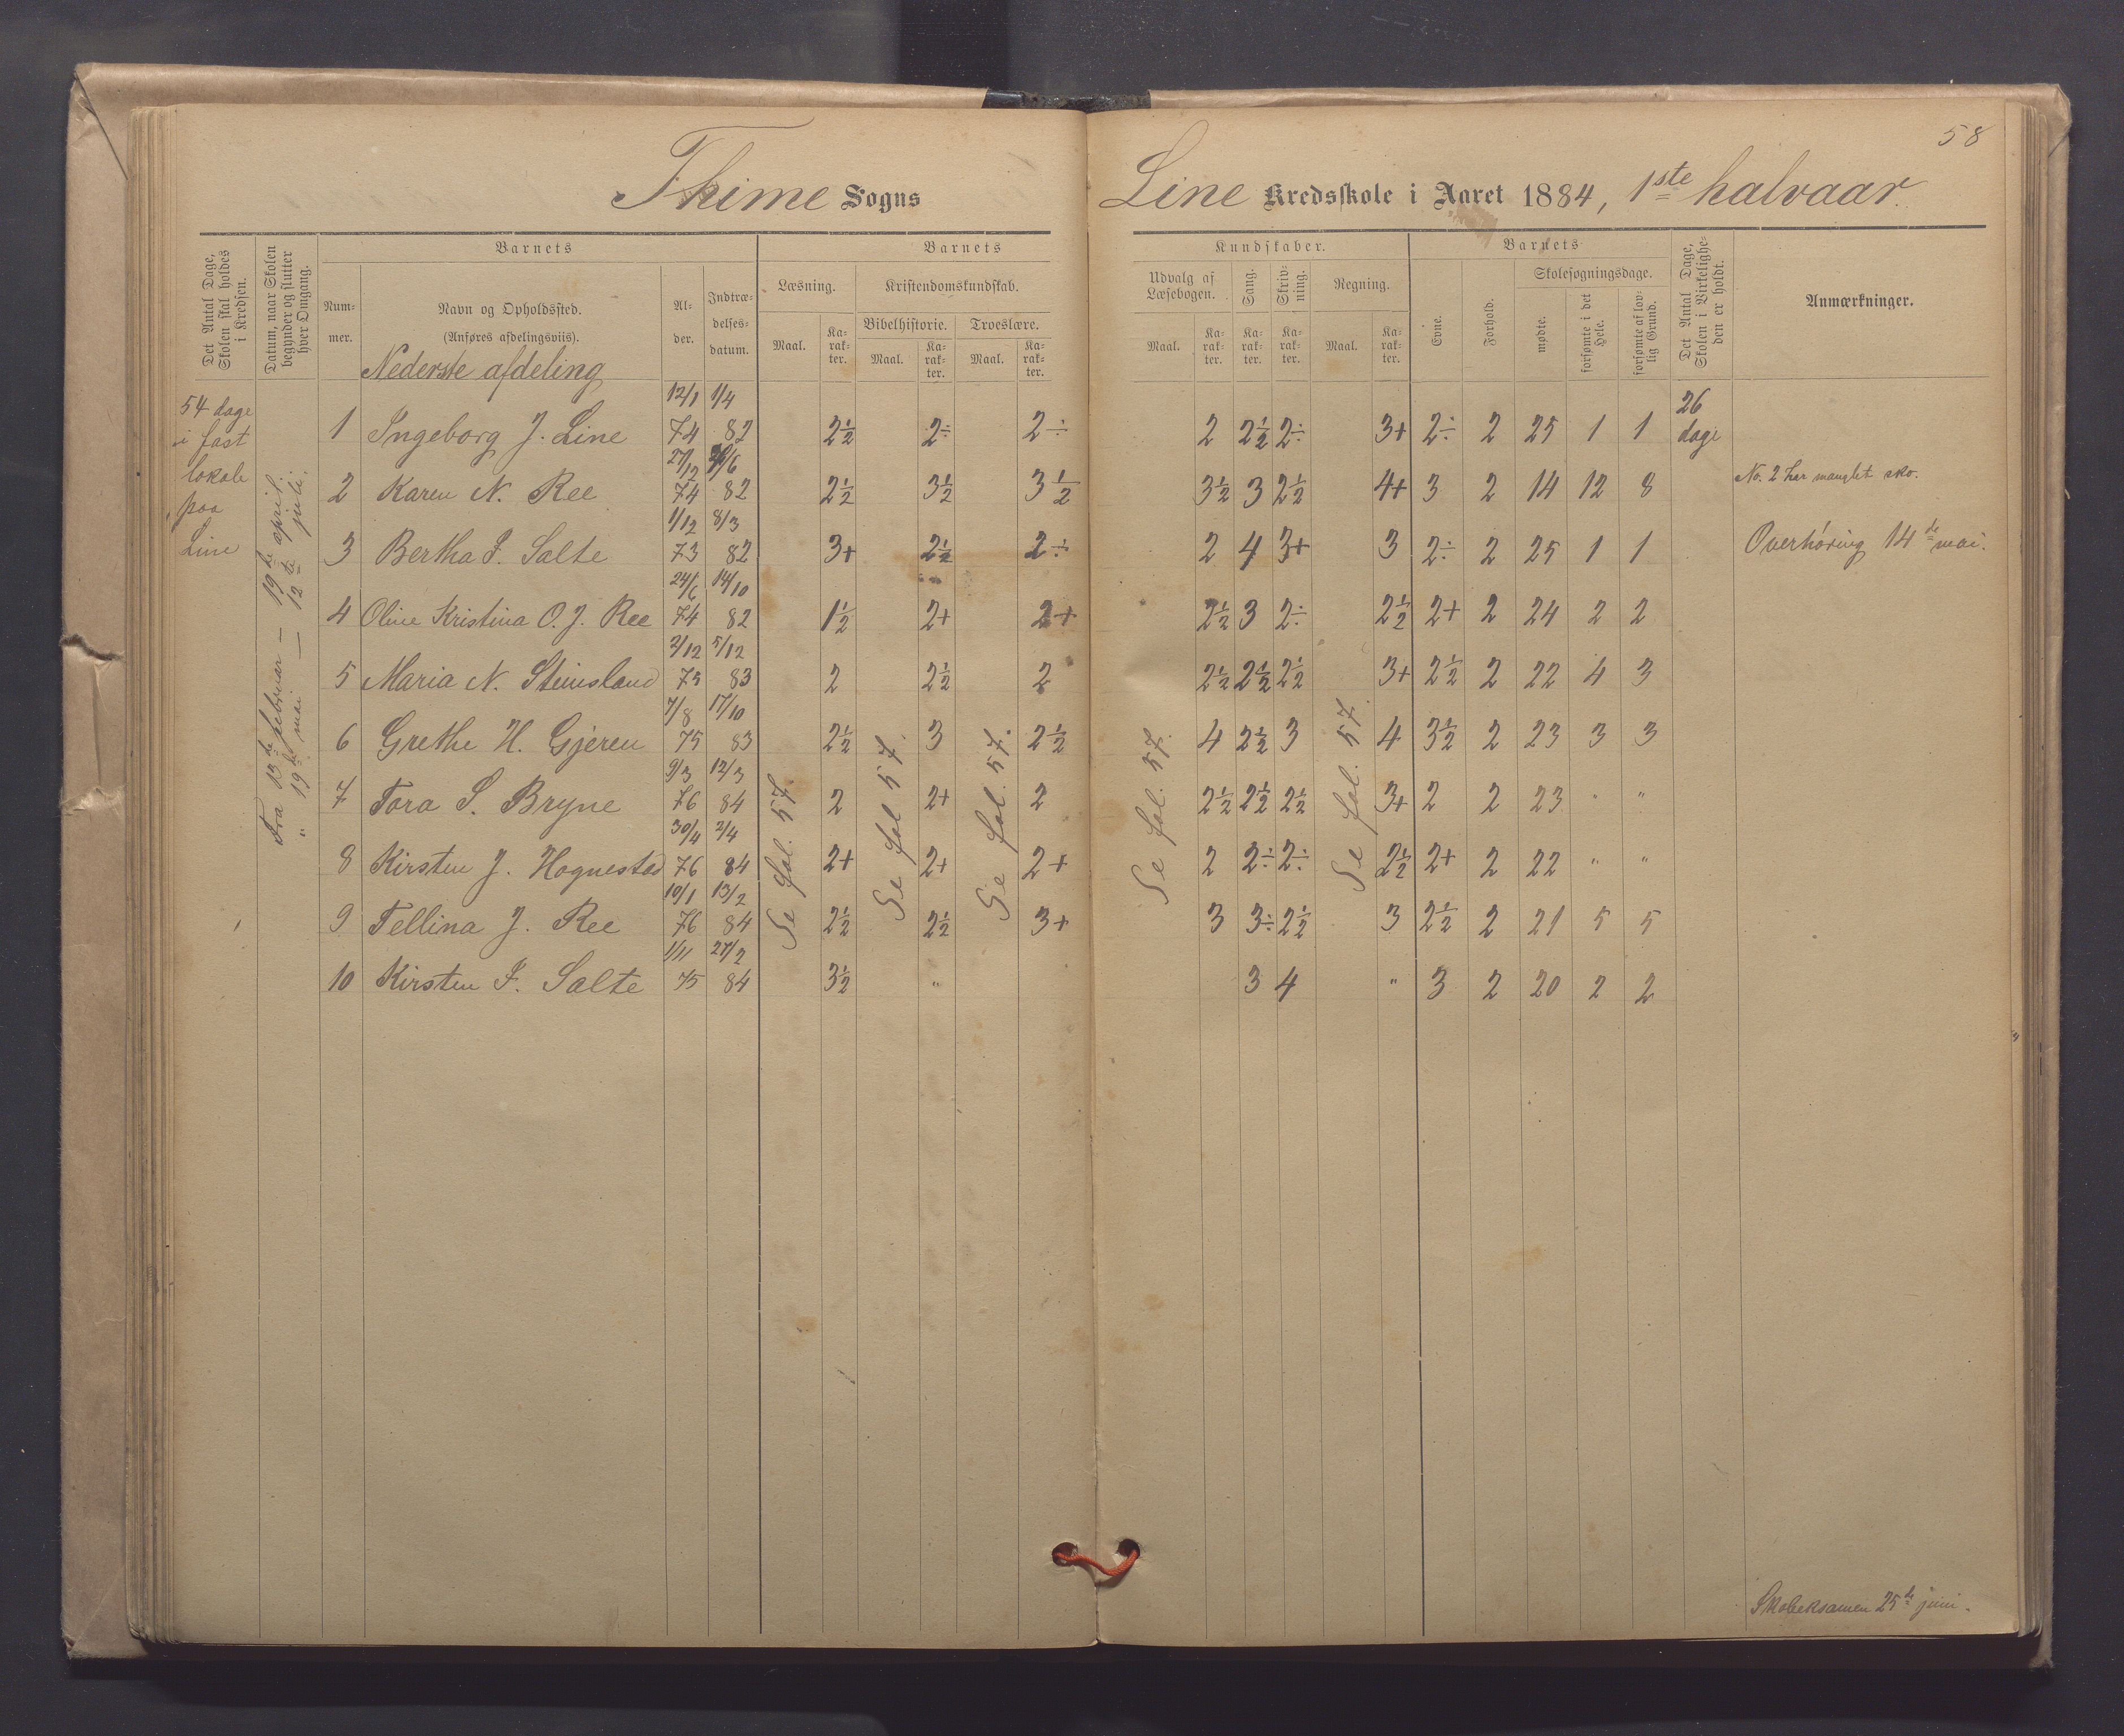 58
Thime Sogns Line Kredsskole i Aaret 1884, 1ste halvaar.
Det Antal Dage, Skolen skal holdes i Kredsen.
Datum, naar Skolen begynder og slutter hver Omgang.
Barnets
Nummer.
Navn og Opholdssted.
(Anføres afdelingsviis).
Alder.
Indtrædelsesdatum.
Barnets
Læsning.
Maal.
Karakter.
Kristendomskundskab.
Bibelhistorie.
Maal.
Karakter.
Troeslære.
Maal.
Karakter.
Kundskaber.
Udvalg af Læsebogen.
Maal.
Karakter.
Sang.
Karakter.
Skrivning.
Karakter.
Regning.
Maal.
Karakter.
Barnets
Evne.
Forhold.
Skolesøgningsdage.
mødte.
forsømte i det Hele.
forsømte af lovlig Grund.
Det Antal Dage, Skolen i Virkeligheden er holdt.
Anmærkninger.
Nederste afdeling
54 dage
i fast
lokale
paa
Line
Fra 13de februar — 19de april.
" 19de mai — 12te juli.
1 Ingeborg J. Line 12/1 74 1/4 82 2½ 2÷ 2÷ 2 2½ 2÷ 3+ 2÷ 2 25 1 1 26 dage
2 Karen N. Ree 27/12 74 /6 82 2½ 3½ 3½ 3½ 3 2½ 4+ 3 2 14 12 8 No. 2 har manglet sko.
3 Bertha F. Salte 1/12 73 8/3 82 3+ 2½ 2÷ 2 4 3+ 3 2÷ 2 25 1 1 Overhøring 14de mai.
4 Oline Kristina O. J. Ree 24/6 74 14/10 82 1½ 2+ 2+ 2½ 3 2÷ 2½ 2+ 2 24 2 2
5 Maria N. Steinsland 2/12 75 5/12 83 2 2½ 2 2½ 2½ 2½ 3+ 2½ 2 22 4 3
6 Grethe H. Gjeren 7/8 75 17/10 83 2½ 3 2½ 4 2½ 3 4 3½ 2 23 3 3
7 Tora S. Bryne 9/3 76 12/3 84 2 2+ 2 2½ 2½ 2½ 3+ 2 2 23 " "
8 Kirsten J. Hognestad 30/4 76 2/4 84 2+ 2+ 2+ 2 2÷ 2÷ 2½ 2+ 2 22 " "
9 Tellina J. Ree 10/1 76 13/2 84 2½ 2½ 3+ 3 3÷ 2½ 3 2½ 2 21 5 5
10 Kirsten F. Salte 1/11 75 27/2 84 3½ " 3 4 " 3 2 20 2 2
Se fol. 57.
Se fol 57.
Se fol. 57.
Se fol. 57.
Se fol. 57.
Skoleeksamen 25de juni.